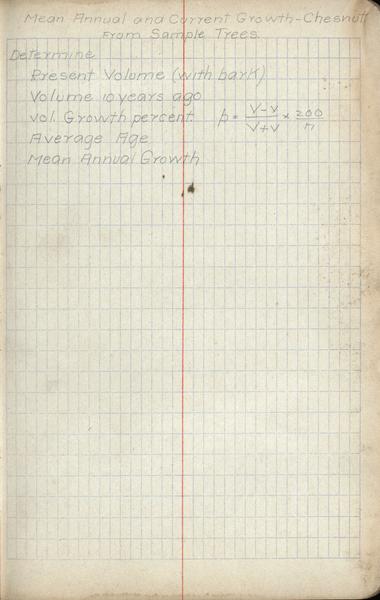 Mean Annual and Current Growth-Chesnut
From Sample Trees.
Determine
Present Volume (with bark)
Volume 10 years ago
Vol. Growth percent. p = V-v/V+v × 200/n
Average Age
Mean Annual Growth